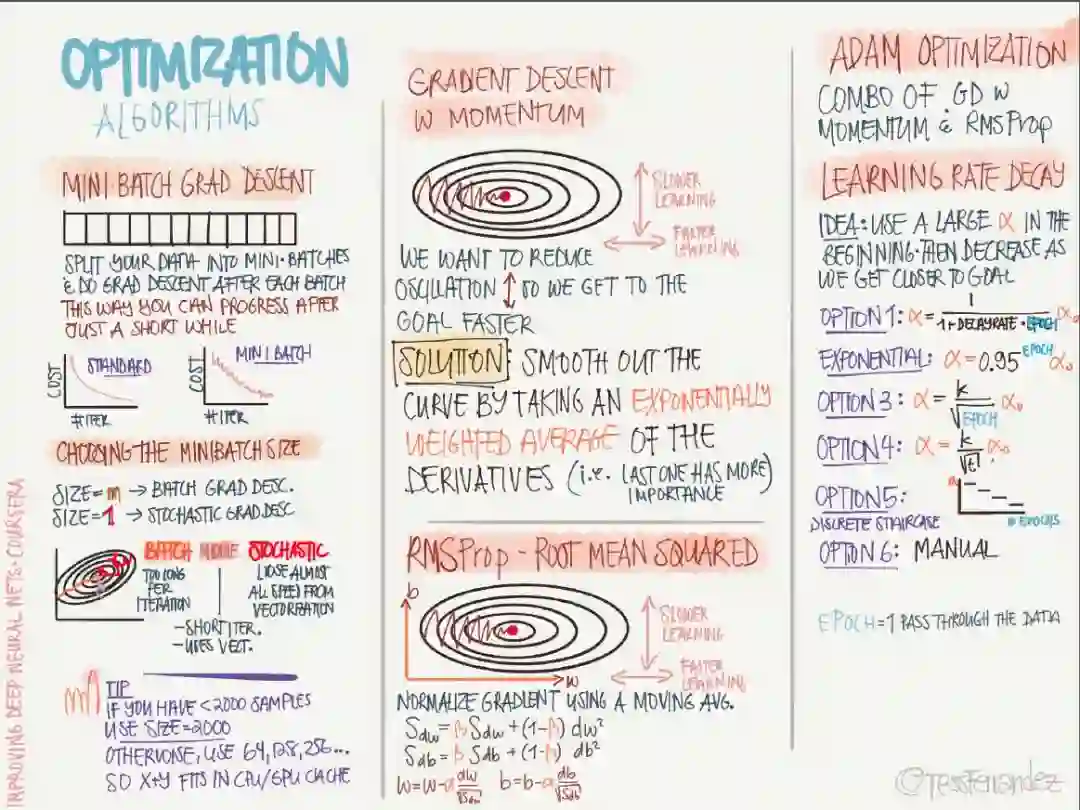 OPTIMIZATION
ALGORITHMS
MINI-BATCH GRAD DESCENT
SPLIT YOUR DATA INTO MINI-BATCHES
& DO GRAD DESCENT AFTER EACH BATCH
THIS WAY YOU CAN PROGRESS AFTER
JUST A SHORT WHILE
COST
STANDARD
#ITER
COST
MINI BATCH
#ITER
CHOOSING THE MINIBATCH SIZE
SIZE=m → BATCH GRAD DESC.
SIZE=1 → STOCHASTIC GRAD DESC
BATCH
TOO LONG
PER
ITERATION
STOCHASTIC
LOSE ALMOST
ALL SPEED FROM
VECTORIZATION
-SHORT ITER.
-USES VECT.
TIP
IF YOU HAVE <2000 SAMPLES
USE SIZE=2000
OTHERWISE, USE 64, 128, 256...
SO X+Y FITS IN CPU/GPU CACHE
IMPROVING DEEP NEURAL NETS · COURSERA
GRADIENT DESCENT
W MOMENTUM
SLOWER
LEARNING
FASTER
LEARNING
WE WANT TO REDUCE
OSCILLATION ↕ SO WE GET TO THE
GOAL FASTER
SOLUTION: SMOOTH OUT THE
CURVE BY TAKING AN EXPONENTIALLY
WEIGHTED AVERAGE OF THE
DERIVATIVES (i.e. LAST ONE HAS MORE
IMPORTANCE)
RMSProp - ROOT MEAN SQUARED
b
SLOWER
LEARNING
w
FASTER
LEARNING
NORMALIZE GRADIENT USING A MOVING AVG.
Sdw = β Sdw + (1-β) dw²
Sdb = β Sdb + (1-β) db²
w=w-α dw/√Sdw b=b-α db/√Sdb
ADAM OPTIMIZATION
COMBO OF GD W
MOMENTUM & RMSProp
LEARNING RATE DECAY
IDEA: USE A LARGE α IN THE
BEGINNING. THEN DECREASE AS
WE GET CLOSER TO GOAL
OPTION 1: α = 1/(1+DECAYRATE · EPOCH) α₀
EXPONENTIAL: α = 0.95^EPOCH α₀
OPTION 3: α = k/√EPOCH α₀
OPTION 4: α = k/√t α₀
OPTION 5:
DISCRETE STAIRCASE
α
# EPOCHS
OPTION 6: MANUAL
EPOCH = 1 PASS THROUGH THE DATA
@TessFerrandez